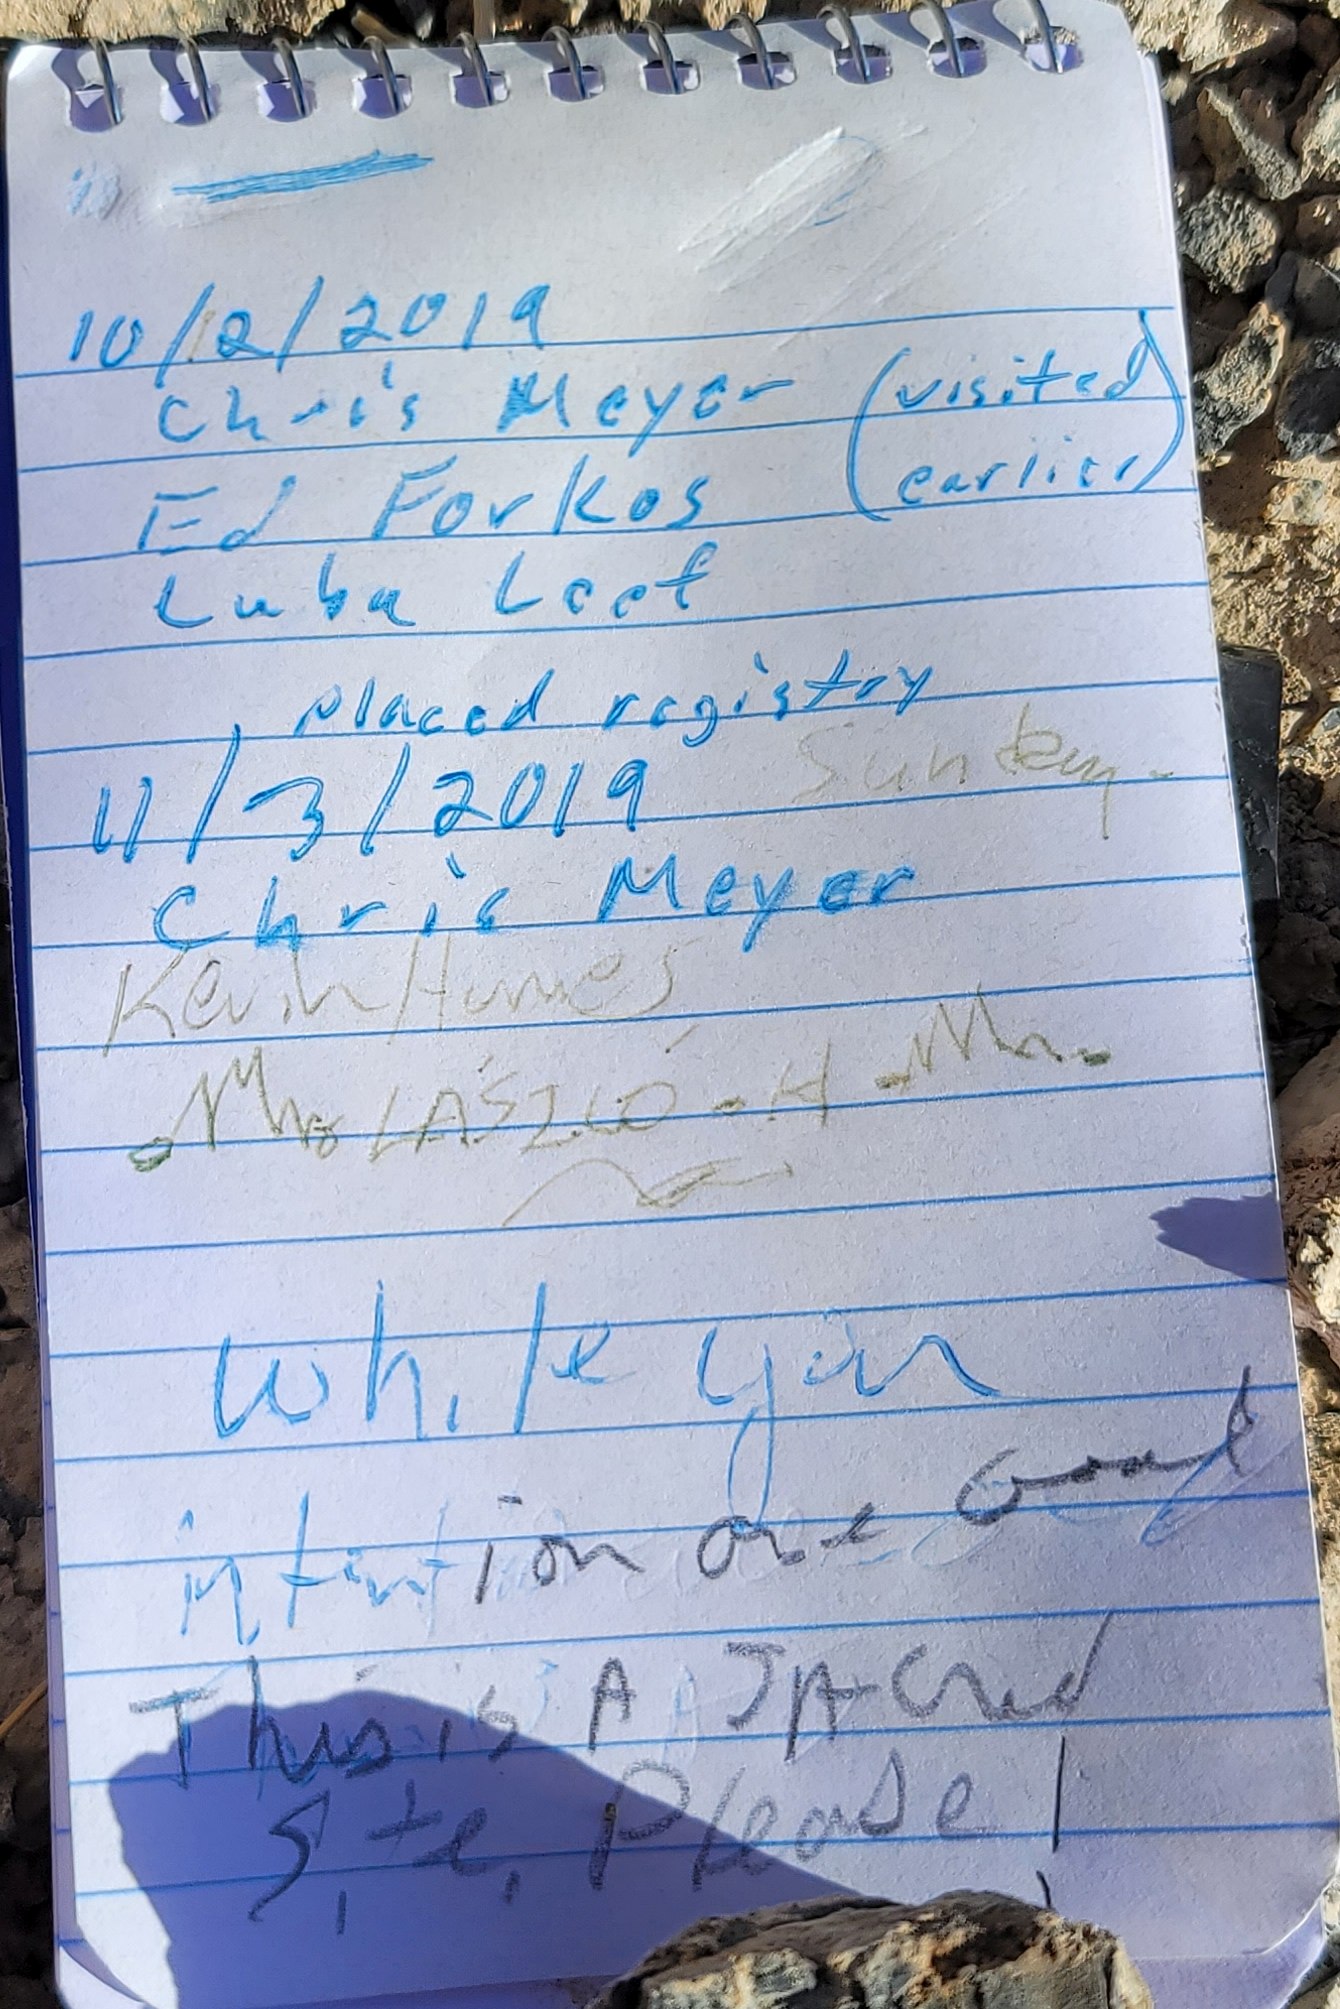 10/2/2019
Chris Meyer (visited
earlier)
Ed Forkos
Luba Leef
placed registry
11/3/2019 Sunday.
Chris Meyer
Kevin Humes
LÁSZLÓ - H
While your
intention are Good
This is A SACred
Site, Please!